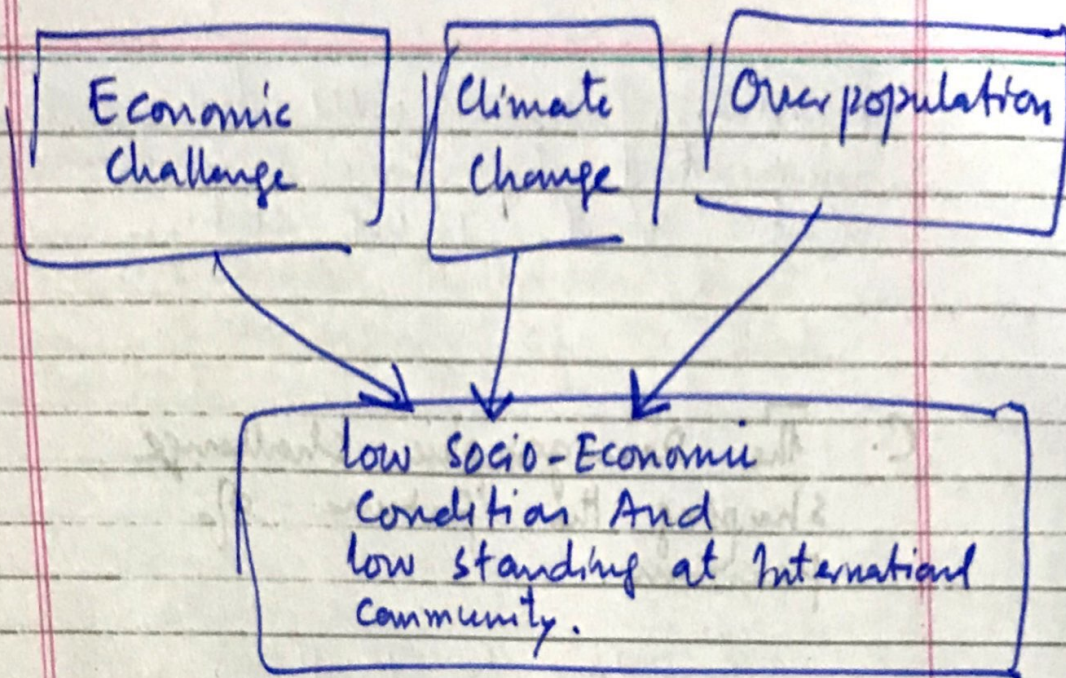 Economic
Challenge
Climate
Change
Overpopulation
low Socio-Economic
Condition And
low standing at International
Community.